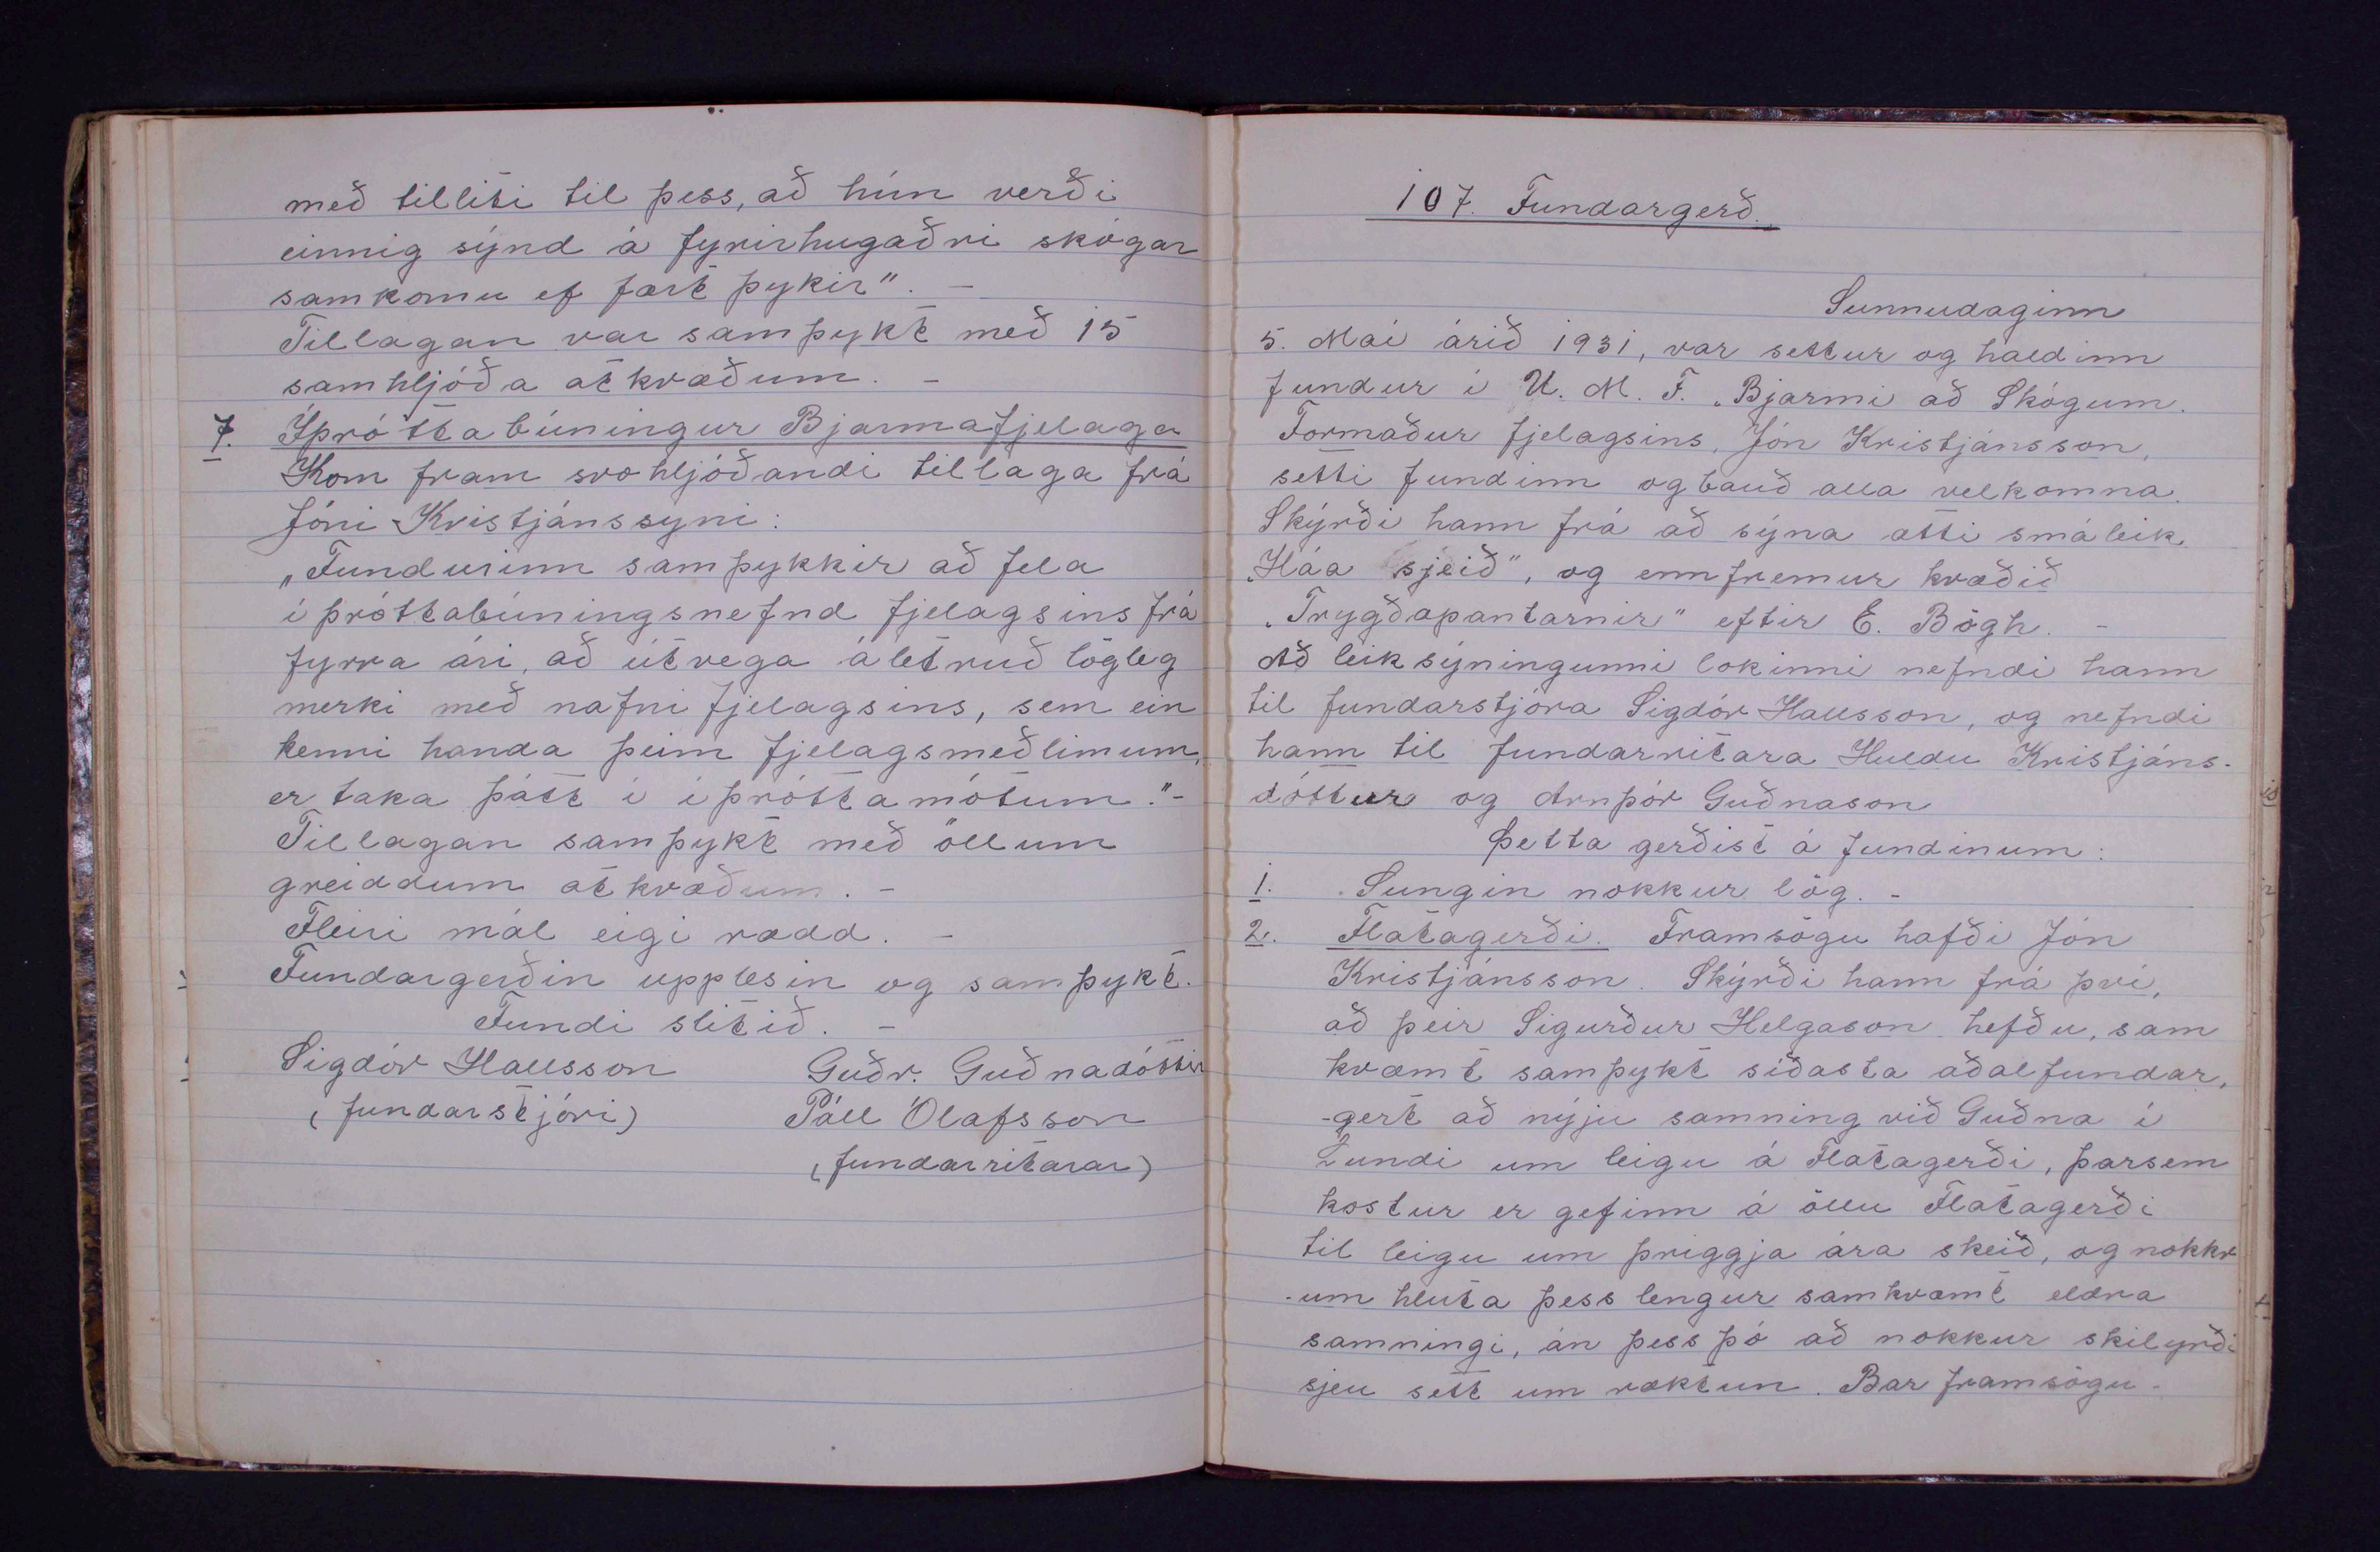 með tilliti til þess, að hún verði
einnig sýnd á fyrirhugaðri skógar
samkomu ef fært þykir". -
Tillagan var samþykt með 15
samhljóða atkvæðum. -
7. Íþróttabúningur Bjarmafjelaga
Kom fram svohljóðandi tillaga frá
Jóni Kristjánssyni:
„Fundurinn samþykkir að fela
íþróttabúningsnefnd fjelagsins frá
fyrra ári, að útvega áletruð lögleg
merki með nafni fjelagsins, sem ein
kenni handa þeim fjelagsmeðlimum,
er taka þátt í íþróttamótum." -
Tillagan samþykt með öllum
greiddum atkvæðum. -
Fleiri mál eigi rædd. -
Fundargerðin upplesin og samþykt.
Fundi slitið. -
Sigdór Hallsson Guðr. Guðnadóttir
(fundarstjóri) Páll Ólafsson
(fundarritarar)
107. Fundargerð.
Sunnudaginn
5. Maí árið 1931, var settur og haldinn
fundur í U. M. F. „Bjarmi að Skógum.
Formaður fjelagsins, Jón Kristjánsson,
setti fundinn og bauð alla velkomna.
Skýrði hann frá að sýna ætti smáleik,
„Háa sjeið", og ennfremur kvæðið
„Trygðapantarnir" eftir E. Bögh. -
Að leiksýningunni lokinni nefndi hann
til fundarstjóra Sigdór Hallsson, og nefndi
hann til fundarritara Huldu Kristjáns-
dóttur og Arnþór Guðnason
Þetta gerðist á fundinum:
1. Sungin nokkur lög. -
2. Flatagerði. Framsögu hafði Jón
Kristjánsson. Skýrði hann frá því,
að þeir Sigurður Helgason hefðu, sam
kvæmt samþykt síðasta aðalfundar,
-gert að nýju samning við Guðna í
Lundi um leigu á Flatagerði, þarsem
kostur er gefinn á öllu Flatagerði
til leigu um þriggja ára skeið, og nokkr
-um hluta þess lengur samkvæmt eldra
samningi, án þess þó að nokkur skilyrði
sjeu sett um ræktun. Bar framsögu-